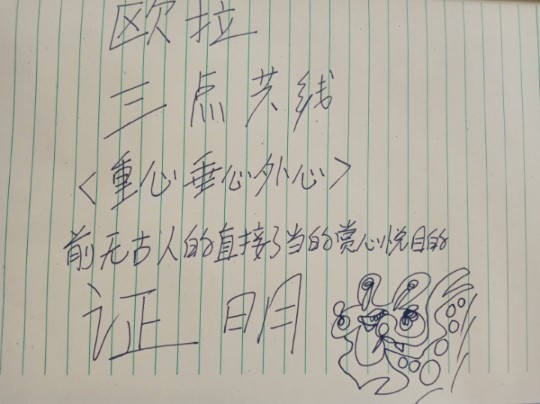 欧拉
三点共线
<重心垂心外心>
前无古人的直接了当的赏心悦目的
证明